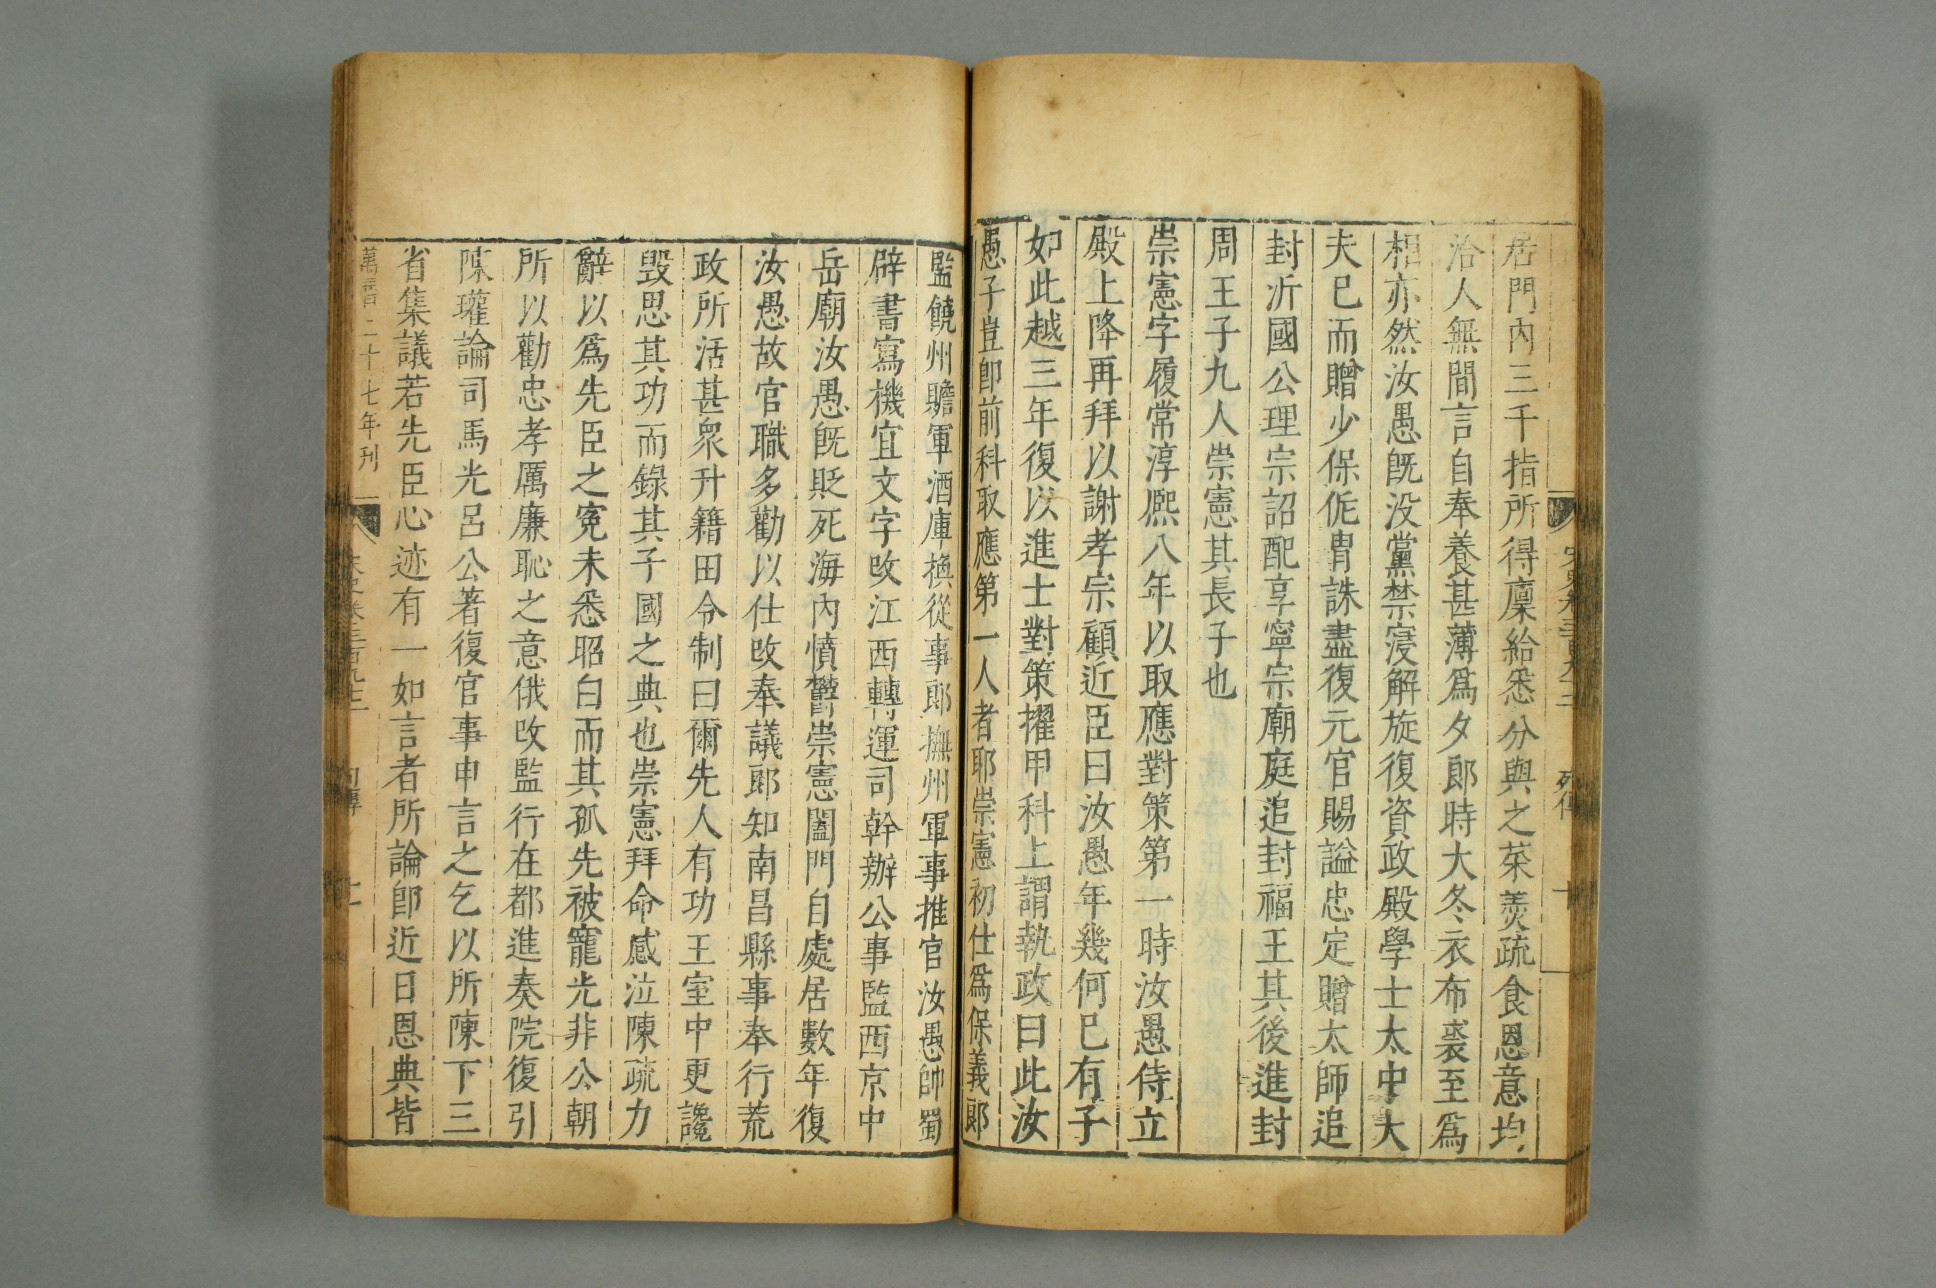 宋史卷三百九十二
列傳
十
居門內三千指所得廩給悉分與之菜羮疏食恩意均
洽人無間言自奉養甚薄爲夕郎時大冬衣布裘至爲
相亦然汝愚旣没黨禁寖解旋復資政殿學士太中大
夫已而贈少保侂胄誅盡復元官賜謚忠定贈太師追
封沂國公理宗詔配享寧宗廟庭追封福王其後進封
周王子九人崇憲其長子也
崇憲字履常淳熈八年以取應對策第一時汝愚侍立
殿上降再拜以謝孝宗顧近臣曰汝愚年幾何已有子
如此越三年復以進士對策擢甲科上謂執政曰此汝
愚子豈卽前科取應第一人者耶崇憲初仕爲保義郎
監饒州贍軍酒庫換從事郎撫州軍事推官汝愚帥蜀
辟書寫機宜文字改江西轉運司幹辦公事監西京中
岳廟汝愚旣貶死海內憤鬱崇憲闔門自處居數年復
汝愚故官職多勸以仕改奉議郎知南昌縣事奉行荒
政所活甚衆升籍田令制曰爾先人有功王室中更讒
毁思其功而錄其子國之典也崇憲拜命感泣陳疏力
辭以爲先臣之寃未悉昭白而其孤先被寵光非公朝
所以勸忠孝厲廉恥之意俄改監行在都進奏院復引
陳瓘論司馬光呂公著復官事申言之乞以所陳下三
省集議若先臣心迹有一如言者所論卽近日恩典皆
萬曆二十七年刊
宋史卷三百九十二
列傳
十一